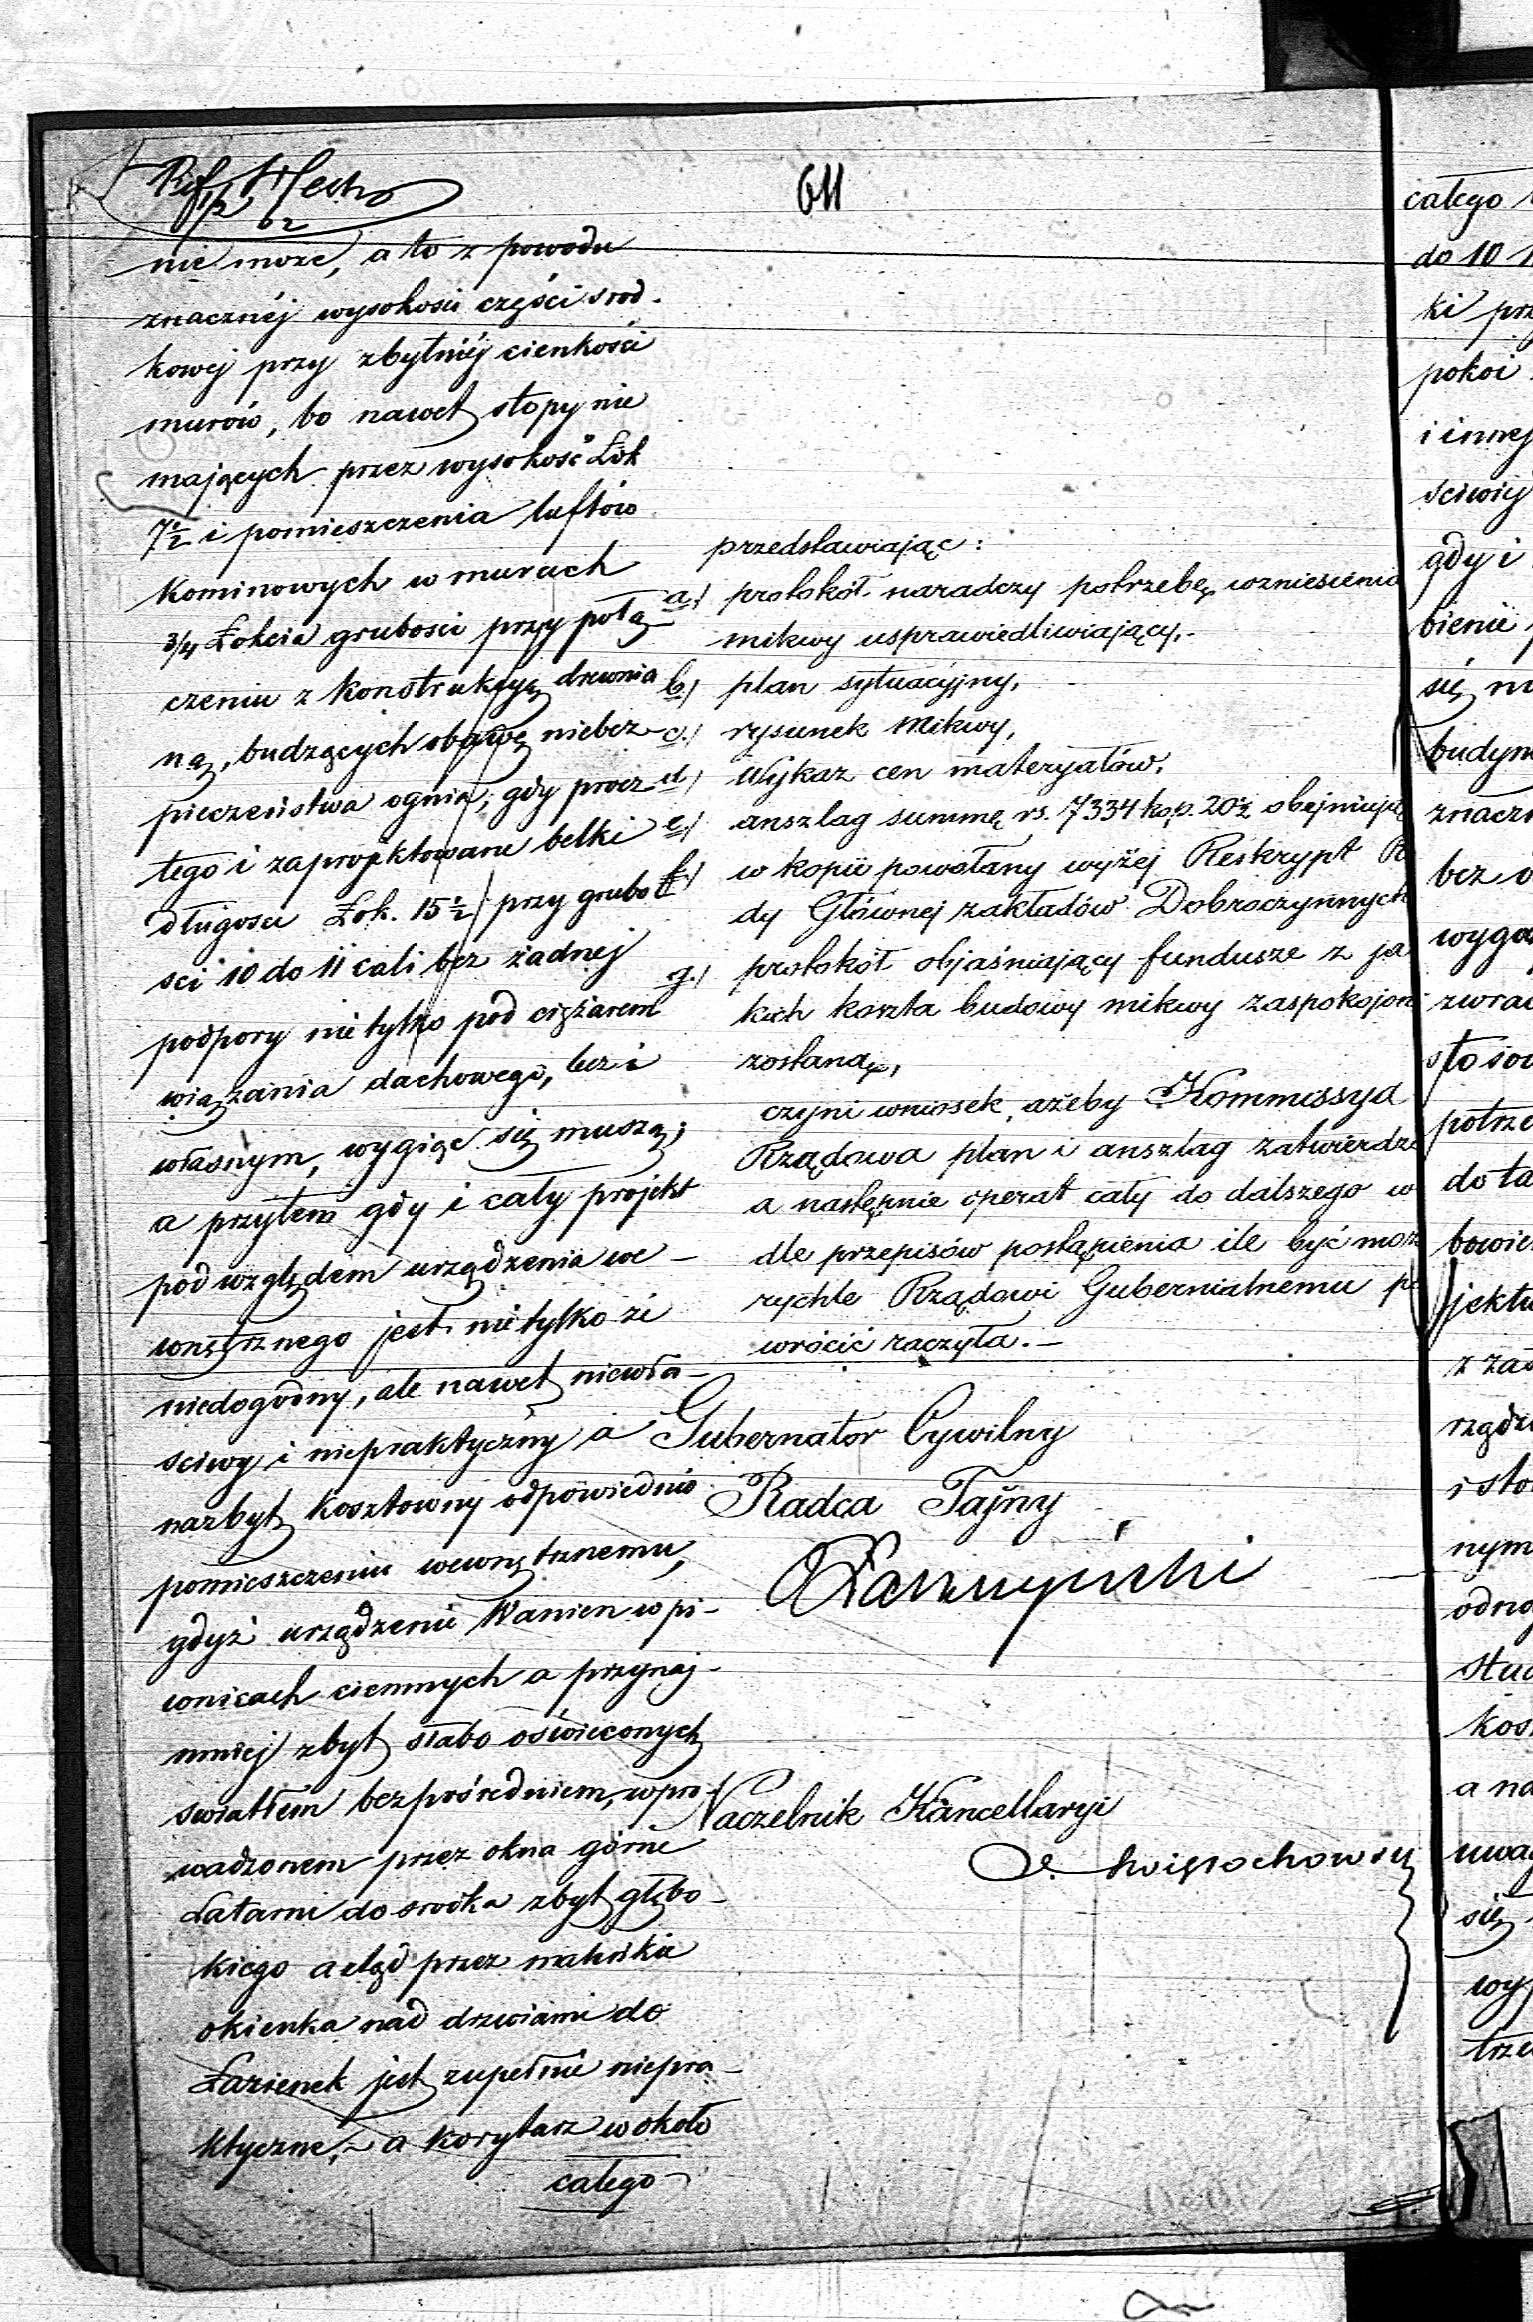 611
nie może, a to z powodu
znacznéj wysokości części srod-
kowej przy zbytniéj cienkości
murów, bo nawet stopy nie
mających przez wysokość Łok
7½ i pomieszczenia luftów
kominowych w murach
3/4 Łokcia grubości przy połą
czeniu z konstrukcyą drewnia
ną, budzących obawę niebez-
pieczeństwa ognia; gdy procz
tego i zaprojektowane belki
długości Łok. 15½ przy grubo
ści 10 do 11 cali bez żadnej
podpory nie tylko pod ciężarem
wiązania dachowego, lecz i
własnym, wygiąc się muszą;
a przytem gdy i cały projekt
pod względem urządzenia we-
wnętrznego jest nie tylko że
niedogodny, ale nawet niewła-
sciwy i niepraktyczny a
nazbyt kosztowny odpowiednio
pomieszczeniu wewnętrznemu,
gdyż urządzenie Wanien w pi-
wnicach ciemnych a przynaj-
mniej zbyt słabo oświeconych
swiatłem bezpośredniem, wpro-
wadzonem przez okna górne
Latarni do srodka zbyt głębo-
kiego a ztąd przez maleńkie
okienka nad drzwiami do
Łazienek jest zupełnie niepra-
ktyczne,- a korytarz wokoło
całego
przedstawiając:
a) protokół naradczy potrzebę wzniesienia
mikwy usprawiedliwiający,-
b) plan sytuacyjny,
c) rysunek Mikwy,
d) Wykaz cen materyałów,
e) anszlag summę rs. 7334 kop. 20½ obejmują
f) w kopii powołany wyżej Reskrypt Ra
dy Głównej zakładów Dobroczynnych
g) protokół objaśniający fundusze z ja
kich koszta budowy mikwy zaspokojone
zostaną,
czyni wniosek, ażeby Kommissya
Rządowa plan i anszlag zatwierdzo
a następnie operat cały do dalszego w
dle przepisów postąpienia ile być moż
rychle Rządowi Gubernialnemu po
wrócić raczyła.-
Gubernator Cywilny
Radca Tajny
Łaszczyński
Naczelnik Kancellaryi
całego
do 10 1
ki prz
pokoi
i innej
sciwiej
gdy i
bienie
się m
budyn
znaczn
bez o
wygo
zwrac
stosow
potrze
do ta
bowie
jektu
z zac
rządz
i sto
nym
odno
stud
kos
a na
uwa
się
wy
trze